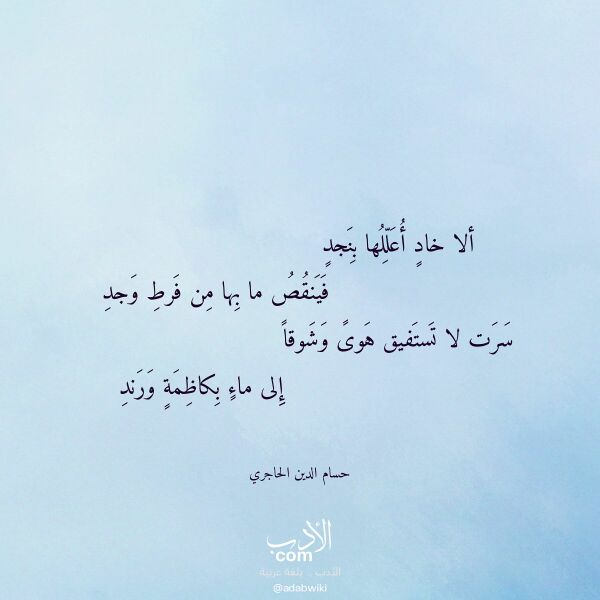 ألا خادٍ أُعَلِّلُها بِنَجدٍ
فَيَنقُصُ ما بِها مِن فَرطِ وَجدِ
سَرَت لا تَستَفيق هَوىً وَشَوقاً
إِلى ماءٍ بِكاظِمَةٍ وَرَندِ
حسام الدين الحاجري
الأدب
com
الأدب .. بلغة عربية
@adabwiki